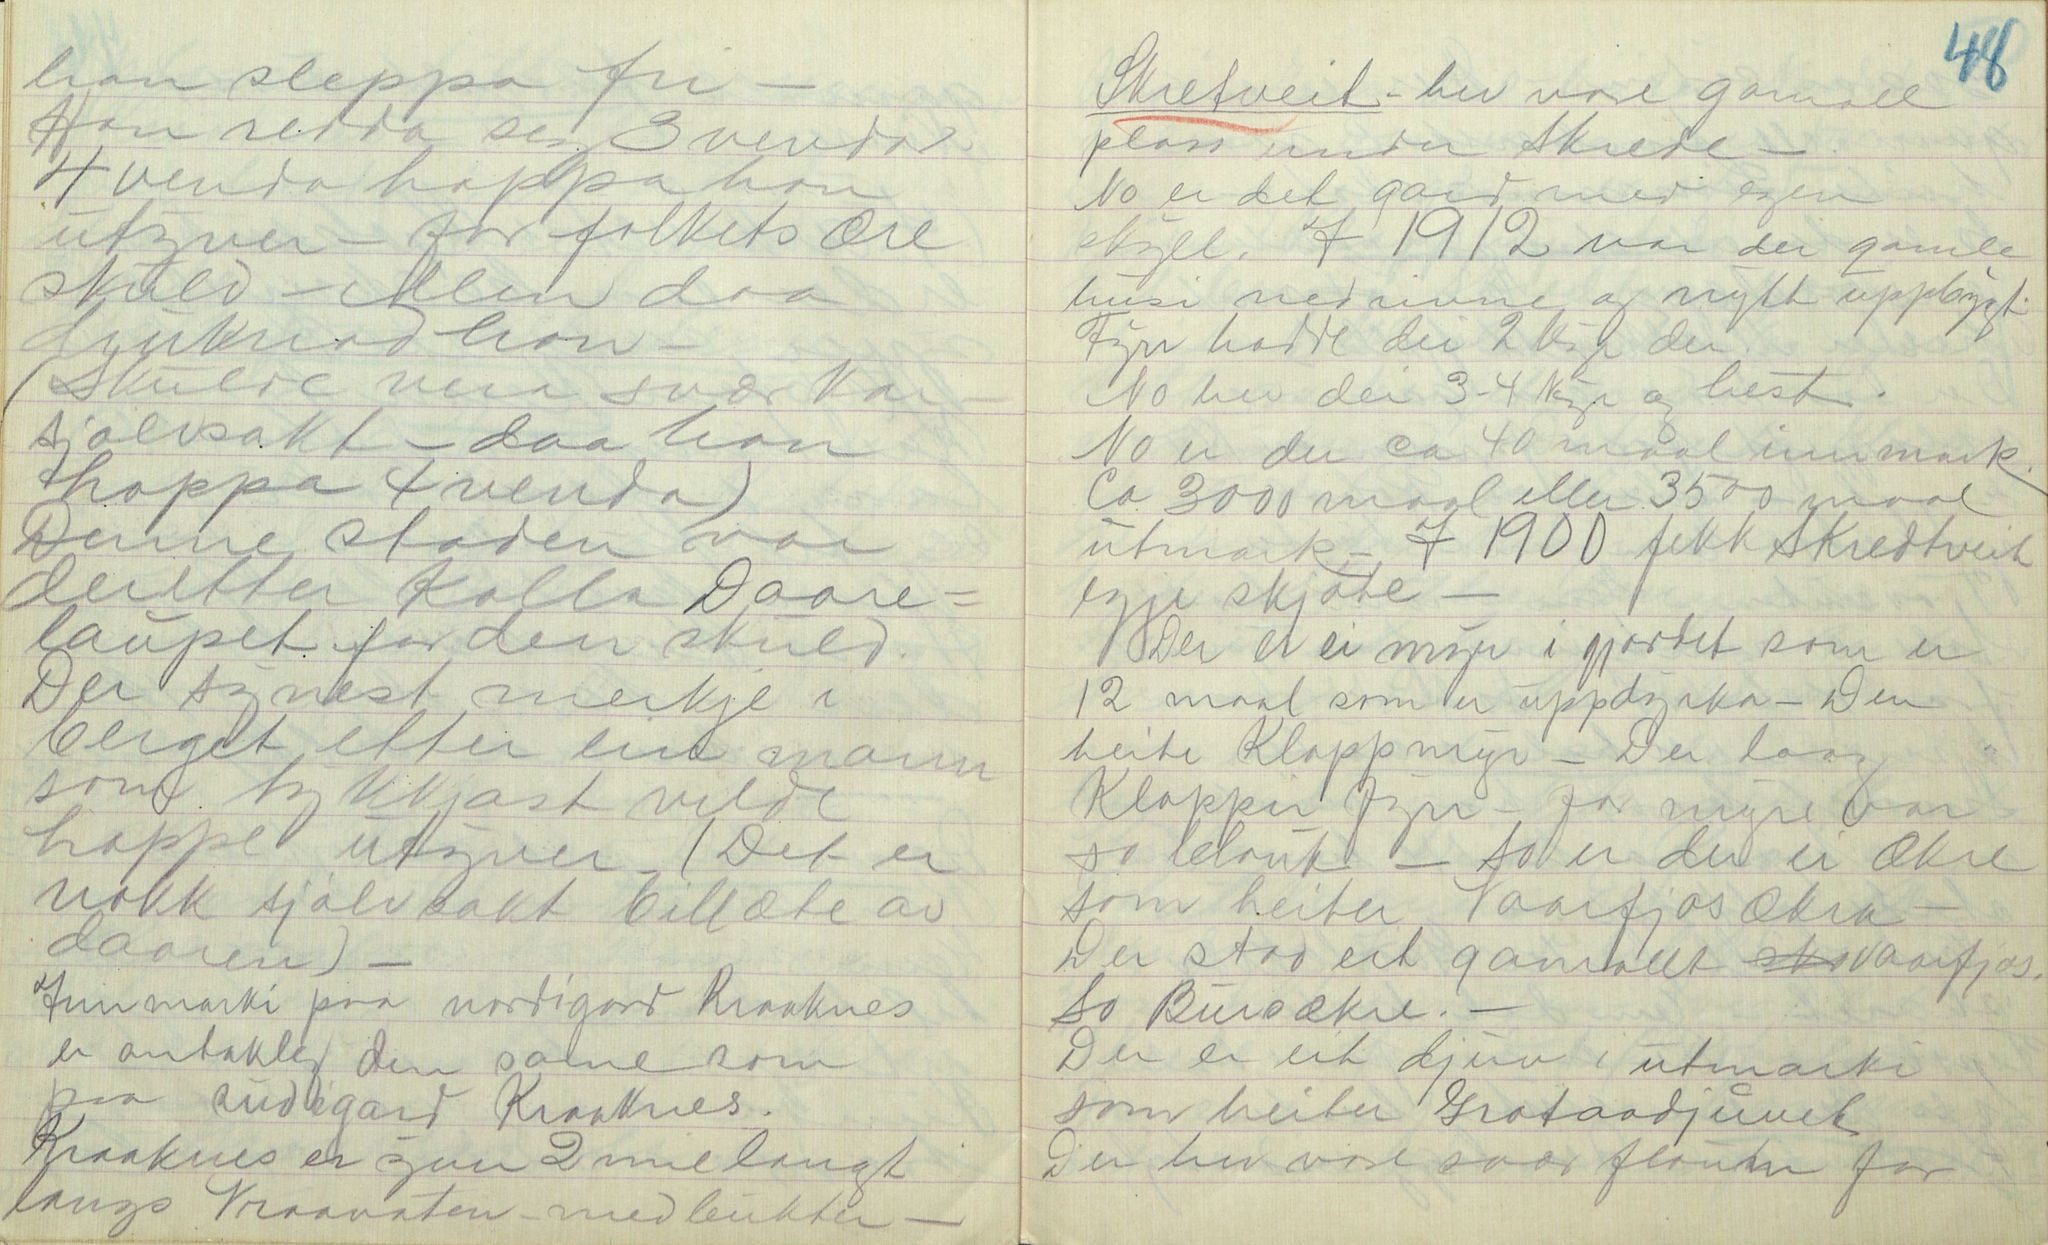 han sleppa fri —
Han redda seg 3 venda.
4 venda hoppa han
utyver — for folkets ære
skuld — Men daa
djuknad han —
(Skulde vera svær kar —
sjølvsakt — daa han
hoppa 4 venda)
Denne staden var
deretter kalla Daare=
laupet for den skuld.
Der synest merkje i
berget etter ein mann
som tykkjast vilde
hoppe utyver. (Det er
nokk sjølvsakt billæte av
daaren) —
Innmarki paa nordigard Kraaknes
er antakleg den same som
paa sudigard Kraaknes.
Kraaknes er yver 2 mil langt
langs Vraavaten — med bukter —
48
Skretveit — hev vore gamall
plass under Skrede —
No er det gard med egen
skyll. I 1912 var dei gamle
husi nedrivne og nytt uppbygt.
Fyrr hadde dei 2 kyr der.
No hev dei 3-4 kyr og hest.
No er der ca 40 maal innmark.
Ca 3000 maal eller 3500 maal
utmark — I 1900 fekk Skredtveit
eygje skjøte —
Der er ei myr i gjordet som er
12 maal som er uppdyrka — Den
heite Kloppmyr — Der laag
Kloppir fyrr — for myre var
so blaut — So er der ei ækre
som heiter Vaarfjosækra —
Der stod eit gamallt sto vaarfjos.
So Buroækre. —
Der er eit djuv i utmarki
som heiter Grotaadjuvet
Der hev vore svær flaum for